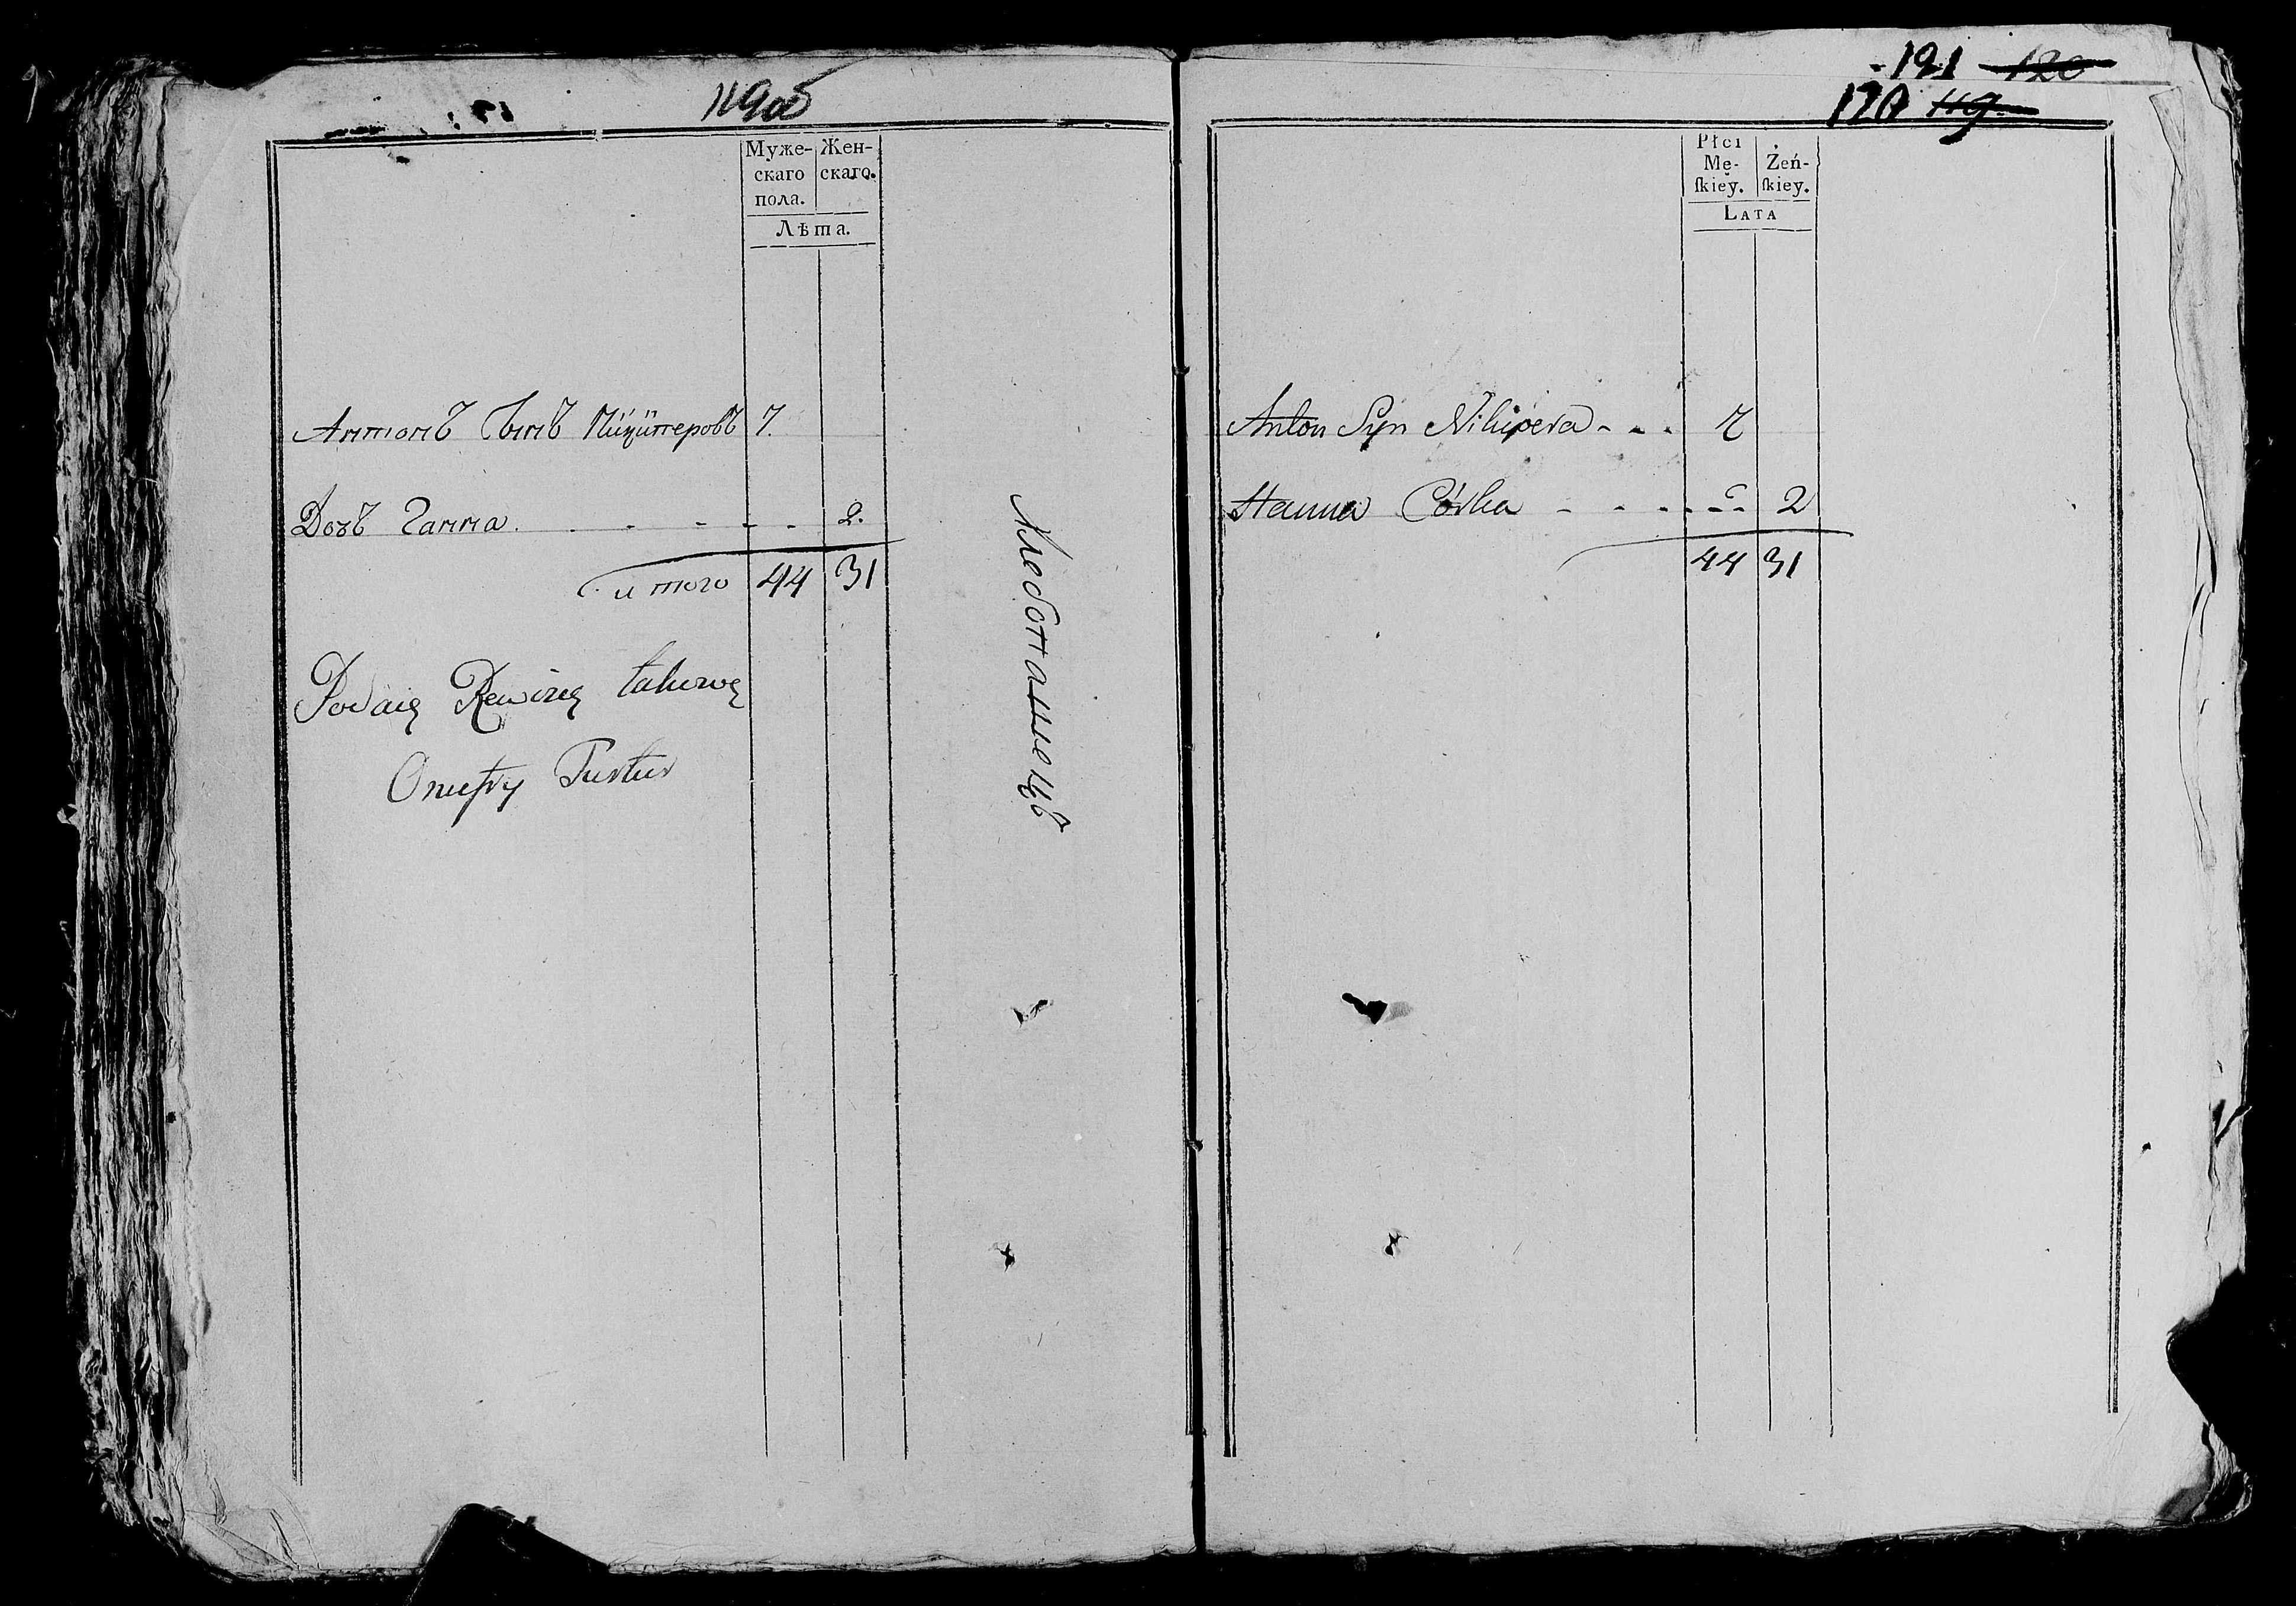 119об
Муже- Жен-
скаго скаго.
пола.
Лѣта.
Антонъ Сынъ Ничиперовъ 7.
Дочь Ганна. 2.
и того 44 31
Podaię Rewizyę takową
Onufry Turkur
121 120
120 119
Płci
Mę- Żeń-
skiey. skiey.
LATA
Anton Syn Nikipera - - - 7
Hanna Córka - - - - - 2
44 31